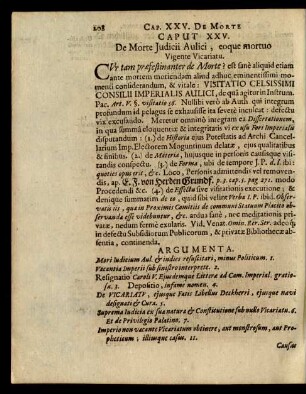 208 CAP. XXV. DE MORTE
CAPUT XXV.
De Morte Judicii Aulici, eoque mortuo
Vigente Vicariatu.
CUr tam præfestinanter de Morte? est sanè aliquid etiam
ante mortem moriendam aliud adhuc eminentissimi mo-
menti considerandum, & vitale: VISITATIO CELSISSIMI
CONSILII IMPERIALIS AULICI, de quâ agitur in Instrum.
Pac. Art. V. §. visitatio 56. Nullibi verò ab Auth. qui integrum
profundum id pelagus se exhausisse ita severè inculcat: defectu
vix excusando. Meretur omninò integram ex Dissertationem,
in qua summâ eloquentiæ & integritatis vi ex usu Fori Imperialis
disputandum (1.) de Historia ejus Potestatis ad Archi Cancel-
larium Imp. Electorem Moguntinum delatæ, ejus qualitatibus
& finibus. (2.) de Materia, hujusque in personis causisque visi-
tandis conspectu. (3.) de Forma, ubi de tempore J. P. d. §. ibi:
quoties opus erit, &c. Loco, Personis admittendis vel removen-
dis, ap. E. J. von Herden Grundf. p. 2. c. 4. §. pag. 271. modo
Procedendi &c. (4.) de Effectu sive visitationis executione; &
denique summatim de eo, quid sibi velint Verba I. P. ibid. Obser-
vatis iis, quæ in Proximis Comitiis de communi Statuum Placito obser-
vanda esse videbuntur, &c. arduæ sanè, nec meditationis priva-
tæ, nedum fermè exolaris. Vid. Venat. Omis. Per. Ser. adposi.
in defectu Subsidiorum Publicorum, & privatæ Bibliothecæ ab-
sentia, continenda.
ARGUMENTA.
Mori Iudicium Aul. & iudices resuscitari, minus Politicum. 1.
Vacantia Imperii sub sinistro interprete. 2.
Resignatio Caroli V. Ejusdémque Litteræ ad Cam. Imperial. gratio-
sæ. 3. Depositio, infame nomen. 4.
De VICARIATV, ejusque Fatis Libellus Deckherri, ejusque navi
designati & Cura. 5.
Suprema Iudicia ex sua natura & Constitutione sub nulla Vicariatu. 6.
Et de Privilegio Palatino. 7.
Imperio non vacante Vicariatum obtinere, aut monstrosum, aut Pro-
pheticum; illiusque casus. 11.
Causæ